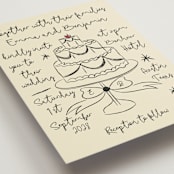 together with their families
Emma and Benjamin
kindly invite at 4pm
you to Bonnie
their Hotel
wedding Austin
Texas
Saturday E & B
1st
September
2028
Reception to follow